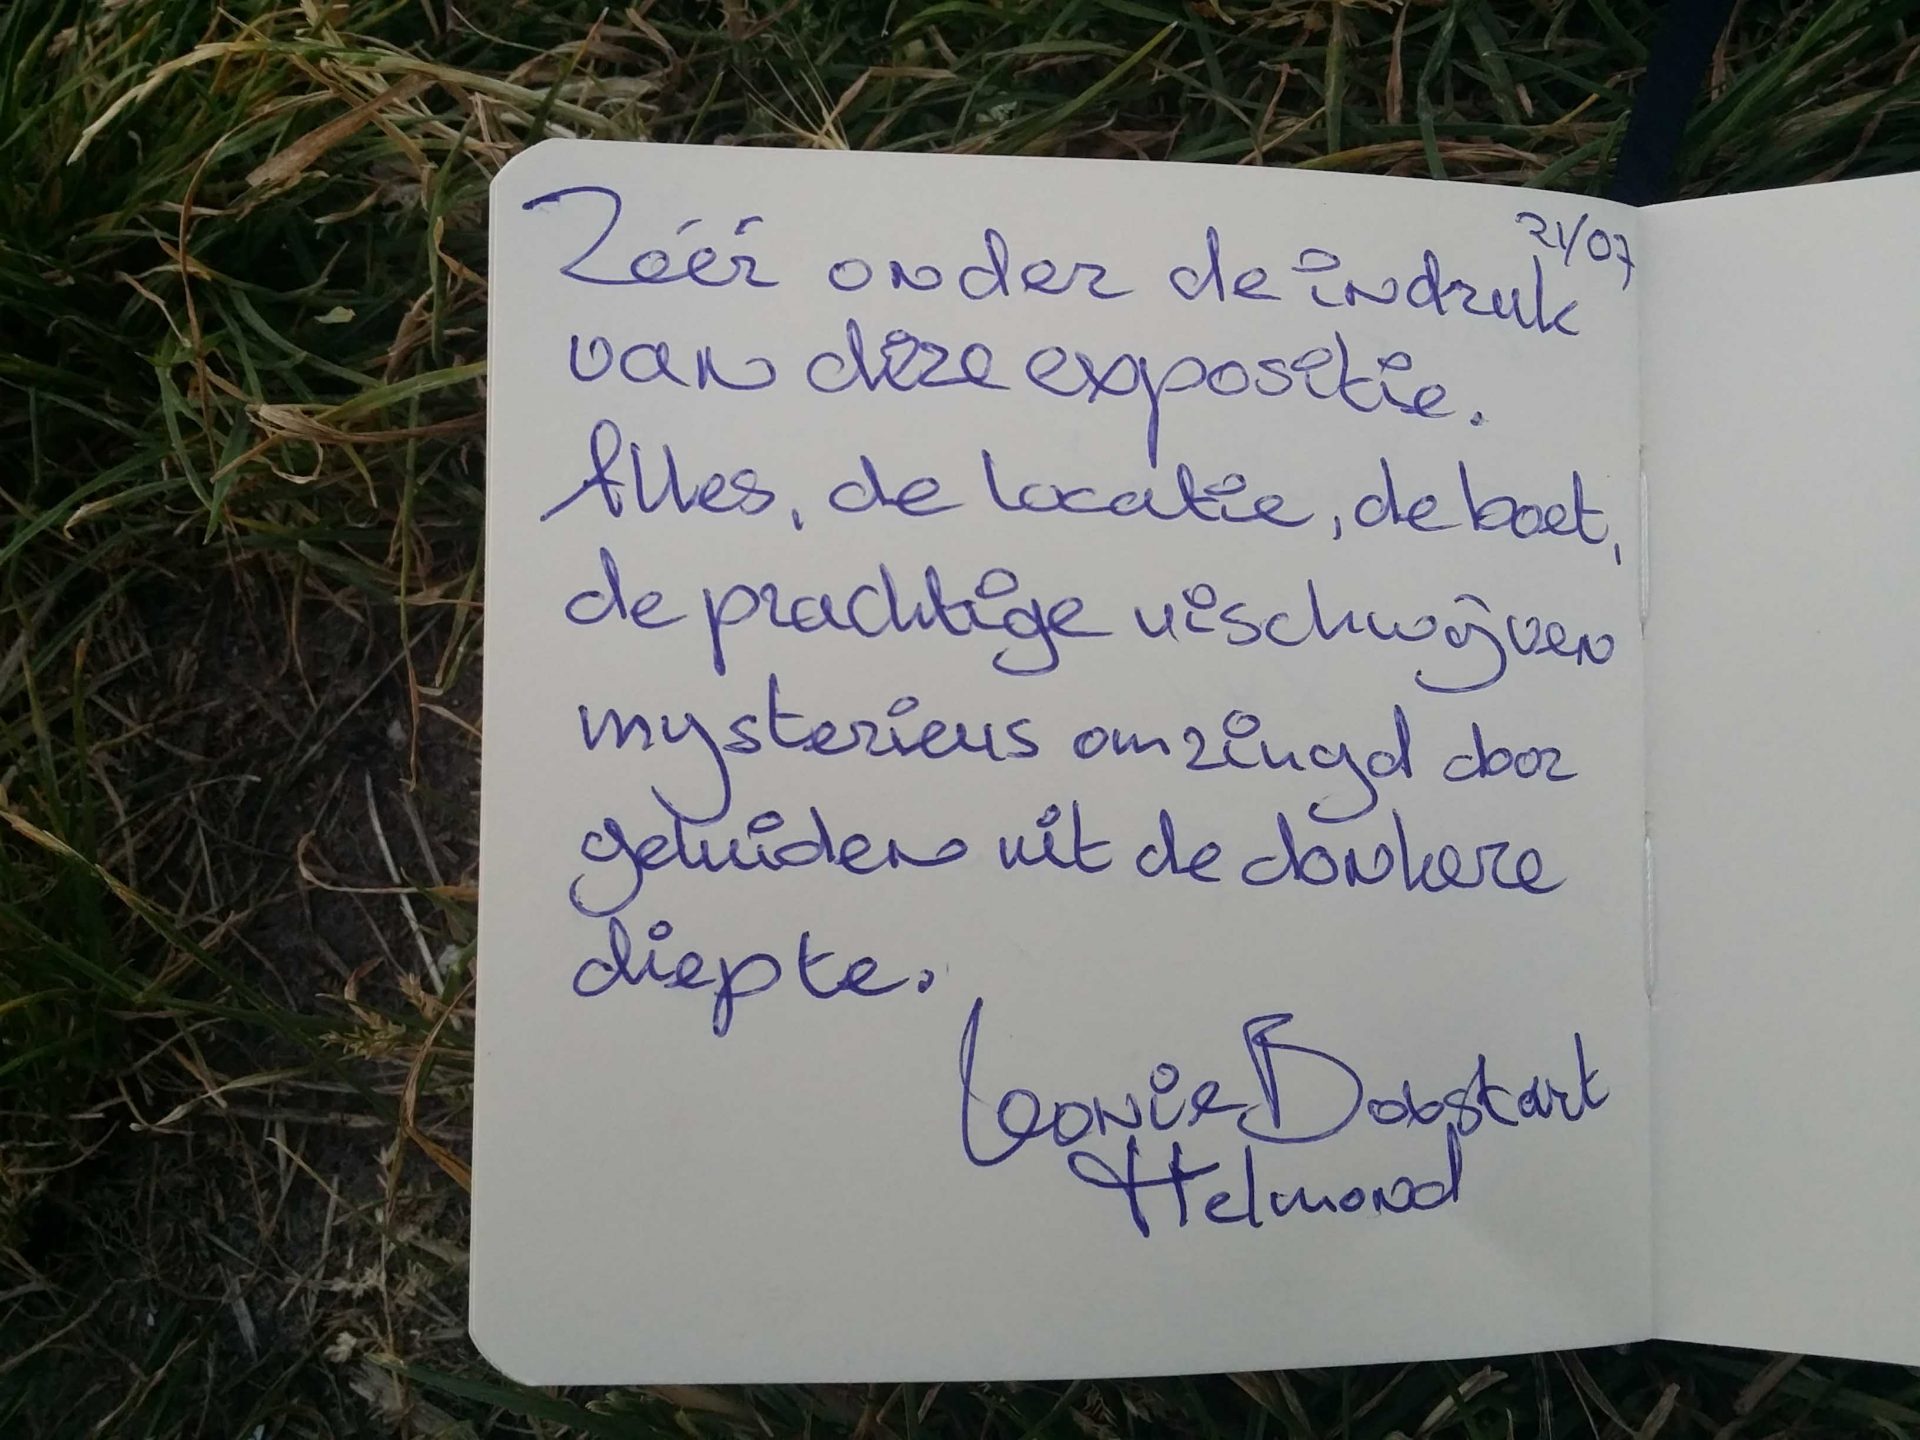 21/07
Zéér onder de indruk
van deze expositie.
Alles, de locatie, de boet,
de prachtige vischwijven
mysterieus omzingd door
geluiden uit de donkere
diepte.
Leonie
Helmond